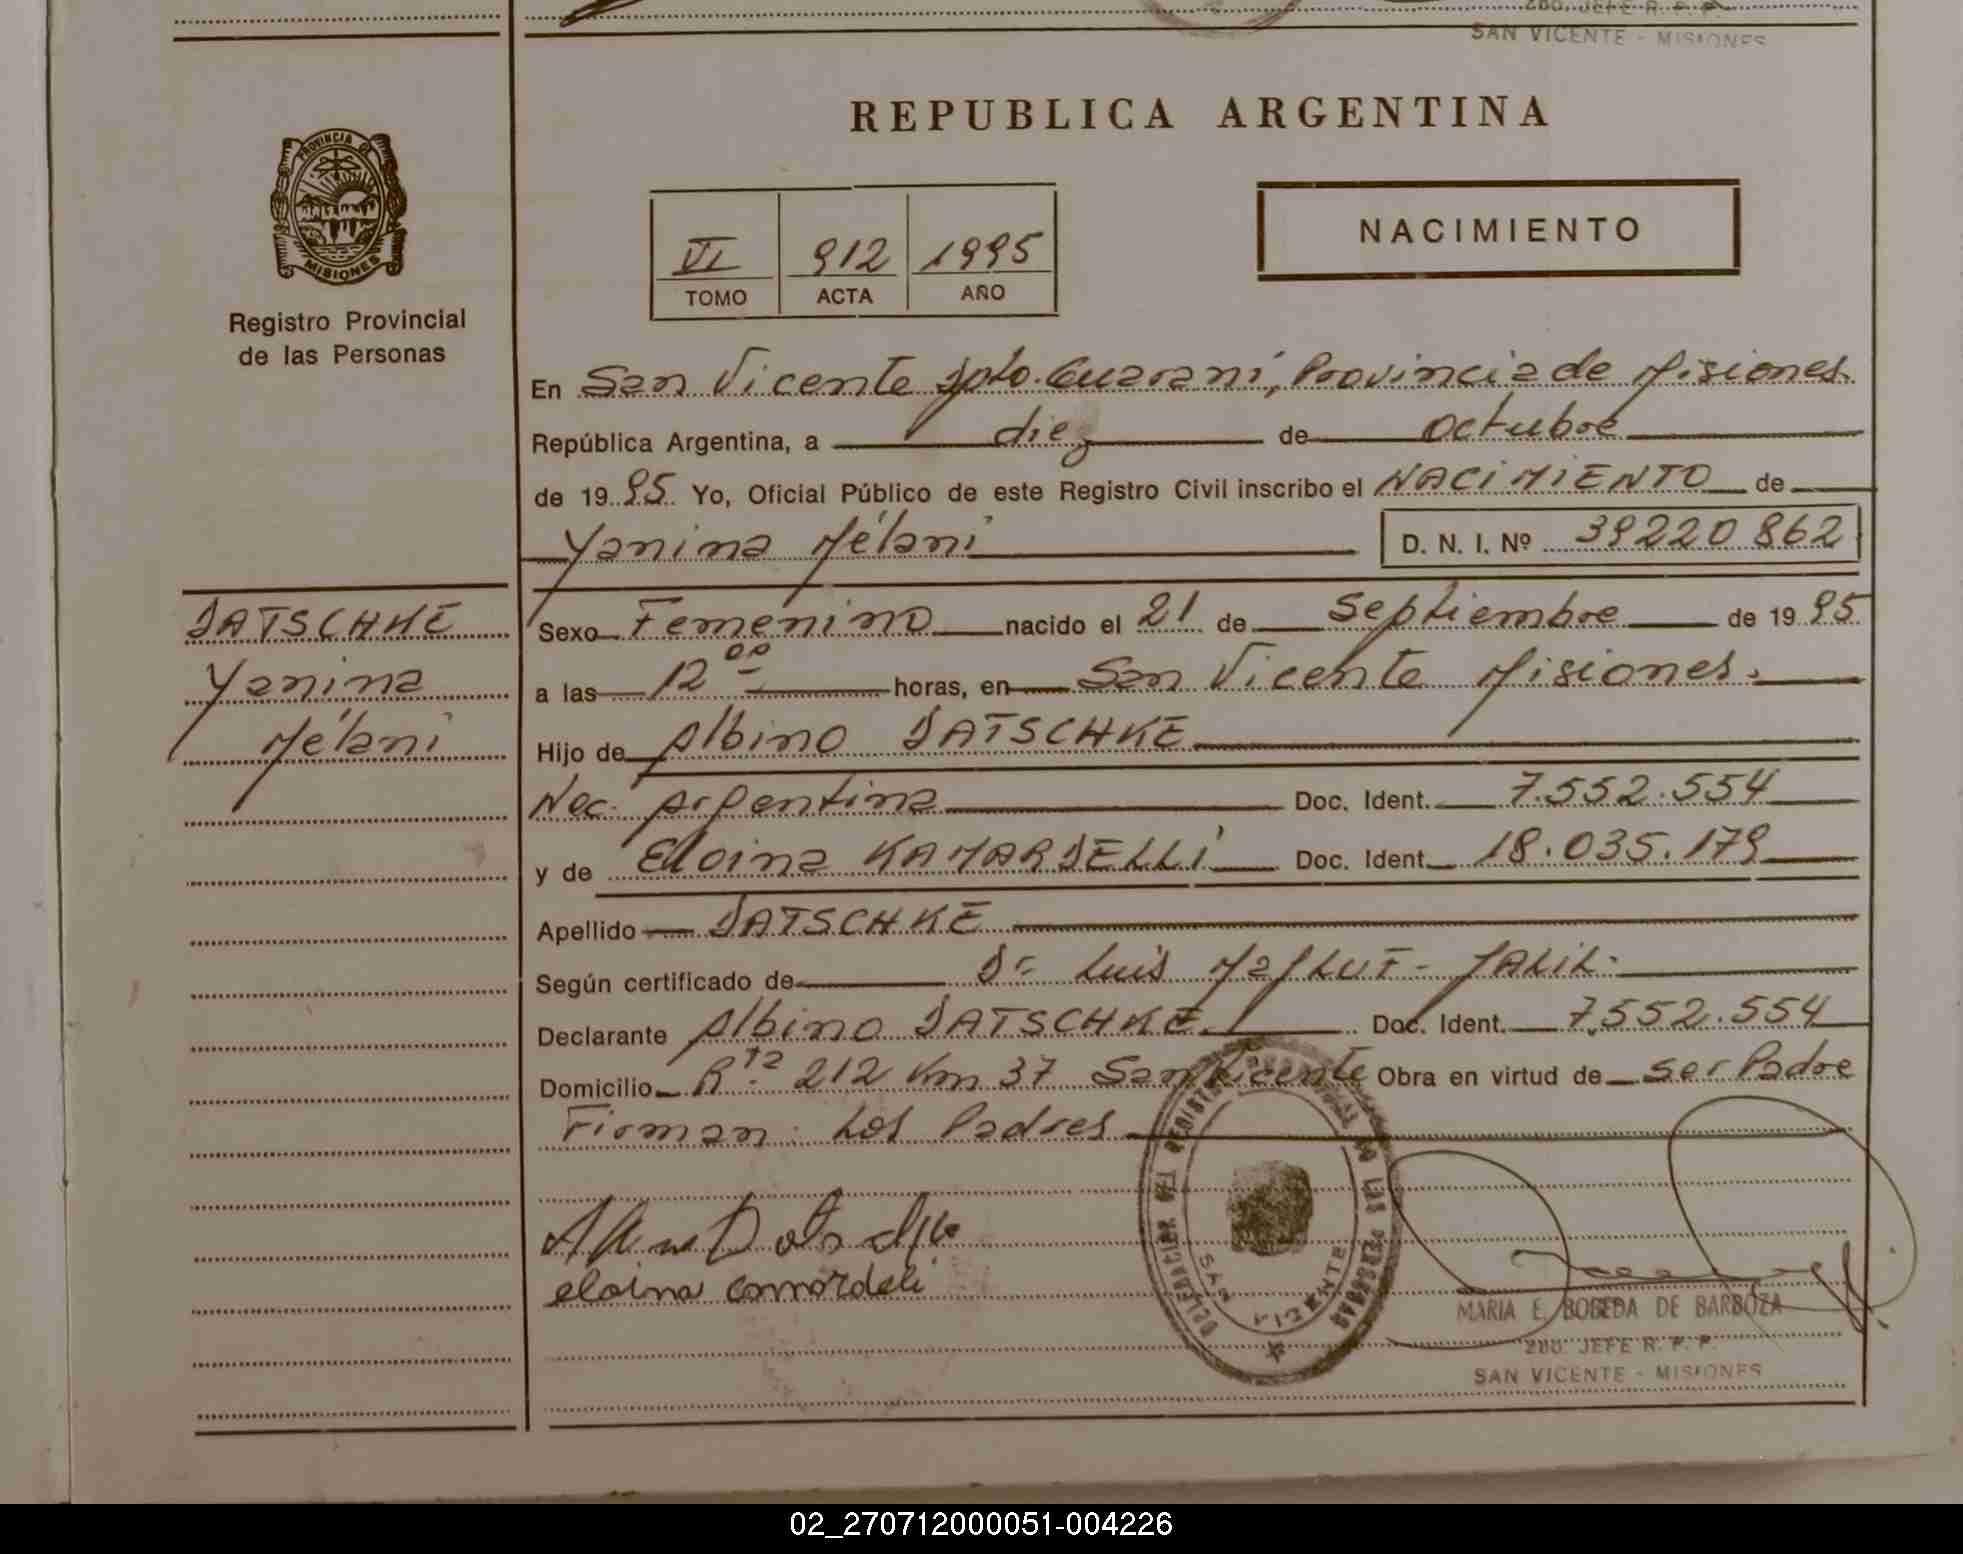 280. JEFE R. P. P.
SAN VICENTE - MISIONES
REPUBLICA ARGENTINA
PROVINCIA DE
MISIONES
Registro Provincial
de las Personas
VI 912 1995
TOMO ACTA AÑO
NACIMIENTO
En San Vicente Dpto. Guaraní, Provincia de Misiones.
República Argentina, a diez de octubre
de 1995 Yo, Oficial Público de este Registro Civil inscribo el NACIMIENTO de
Yanina Mélani D. N. I. Nº 39220862
DATSCHKE
Yanina
Mélani
Sexo Femenino nacido el 21 de Septiembre de 1995
a las 12 00 horas, en San Vicente Misiones.
Hijo de Albino DATSCHKE
Nac. Argentina Doc. Ident. 7.552.554
y de Eloina KAMARDELLI Doc. Ident. 18.035.179
Apellido DATSCHKE
Según certificado de Dr. Luis MaJLUF - JALIL.
Declarante Albino DATSCHKE Doc. Ident. 7.552.554
Domicilio Rta. 212 Km 37 San Vicente Obra en virtud de ser Padre
Firman: Los Padres
eloina comordeli
DELEGACION DEL REGISTRO PROVINCIAL DE LAS PERSONAS
SAN VICENTE
MARIA E. BOBEDA DE BARBOZA
280. JEFE R. P. P.
SAN VICENTE - MISIONES
02_270712000051-004226